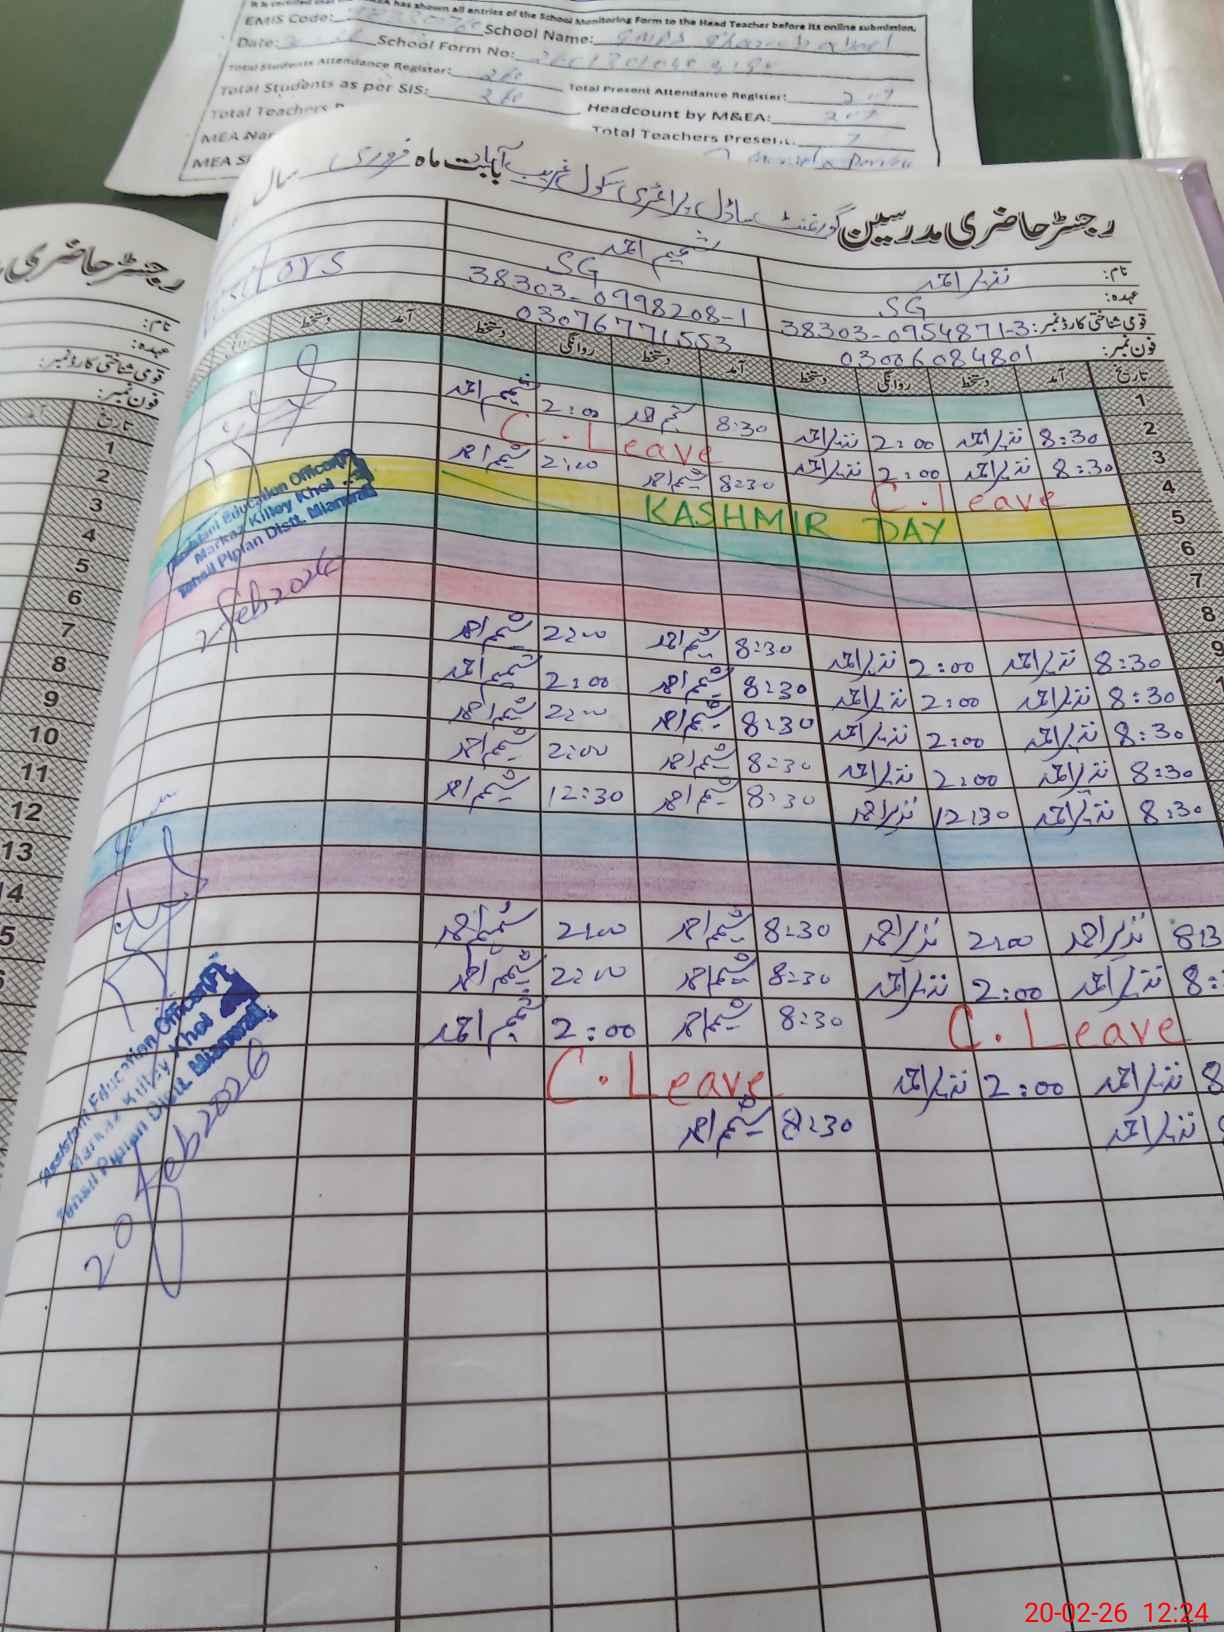 It is certified that MEA has shown all entries of the School Monitoring Form to the Head Teacher before its online submission.
EMIS Code: School Name: GMPS
Date: School Form No:
Total Students Attendance Register: Total Present Attendance Register: 207
Total Students as per SIS: Headcount by M&EA: 207
Total Teachers Total Teachers Present: 7
MEA
MEA
رجسٹر حاضری مدرسین گورنمنٹ ماڈل پرائمری سکول غریب آباد بابت ماہ فروری سال
نام: نذیر احمد شمیم احمد
عہدہ: SG SG
قومی شناختی کارڈ نمبر: 38303-0954871-3 38303-0998208-1
فون نمبر: 03006084801 03076771553
Visitors
تاریخ آمد دستخط روانگی دستخط آمد دستخط روانگی دستخط آمد دستخط
1
2 8:30 نذیر احمد 2:00 نذیر احمد 8:30 شمیم احمد 2:00 شمیم احمد
3 8:30 نذیر احمد 2:00 نذیر احمد C.Leave
4 C.Leave 8:30 شمیم احمد 2:00 شمیم احمد
5 KASHMIR DAY
6
7
8
9 8:30 نذیر احمد 2:00 نذیر احمد 8:30 شمیم احمد 2:00 شمیم احمد
8:30 نذیر احمد 2:00 نذیر احمد 8:30 شمیم احمد 2:00 شمیم احمد
8:30 نذیر احمد 2:00 نذیر احمد 8:30 شمیم احمد 2:00 شمیم احمد
8:30 نذیر احمد 2:00 نذیر احمد 8:30 شمیم احمد 2:00 شمیم احمد
8:30 نذیر احمد 12:30 نذیر احمد 8:30 شمیم احمد 12:30 شمیم احمد
8:3 نذیر احمد 2:00 نذیر احمد 8:30 شمیم احمد 2:00 شمیم احمد
8: نذیر احمد 2:00 نذیر احمد 8:30 شمیم احمد 2:00 شمیم احمد
C.Leave 8:30 شمیم احمد 2:00 شمیم احمد
8 نذیر احمد 2:00 نذیر احمد C.Leave
نذیر احمد 8:30 شمیم احمد
Assistant Education Officer
Markaz Killey Khol
Tehsil Piplan Distt. Mianwali
2 feb 2026
Assistant Education Officer
Markaz Killey Khol
Tehsil Piplan Distt. Mianwali
20 feb 2026
رجسٹر حاضری
نام:
عہدہ:
قومی شناختی کارڈ نمبر:
فون نمبر:
تاریخ آمد
1
2
3
4
5
6
7
8
9
10
11
12
13
14
5
20-02-26 12:24